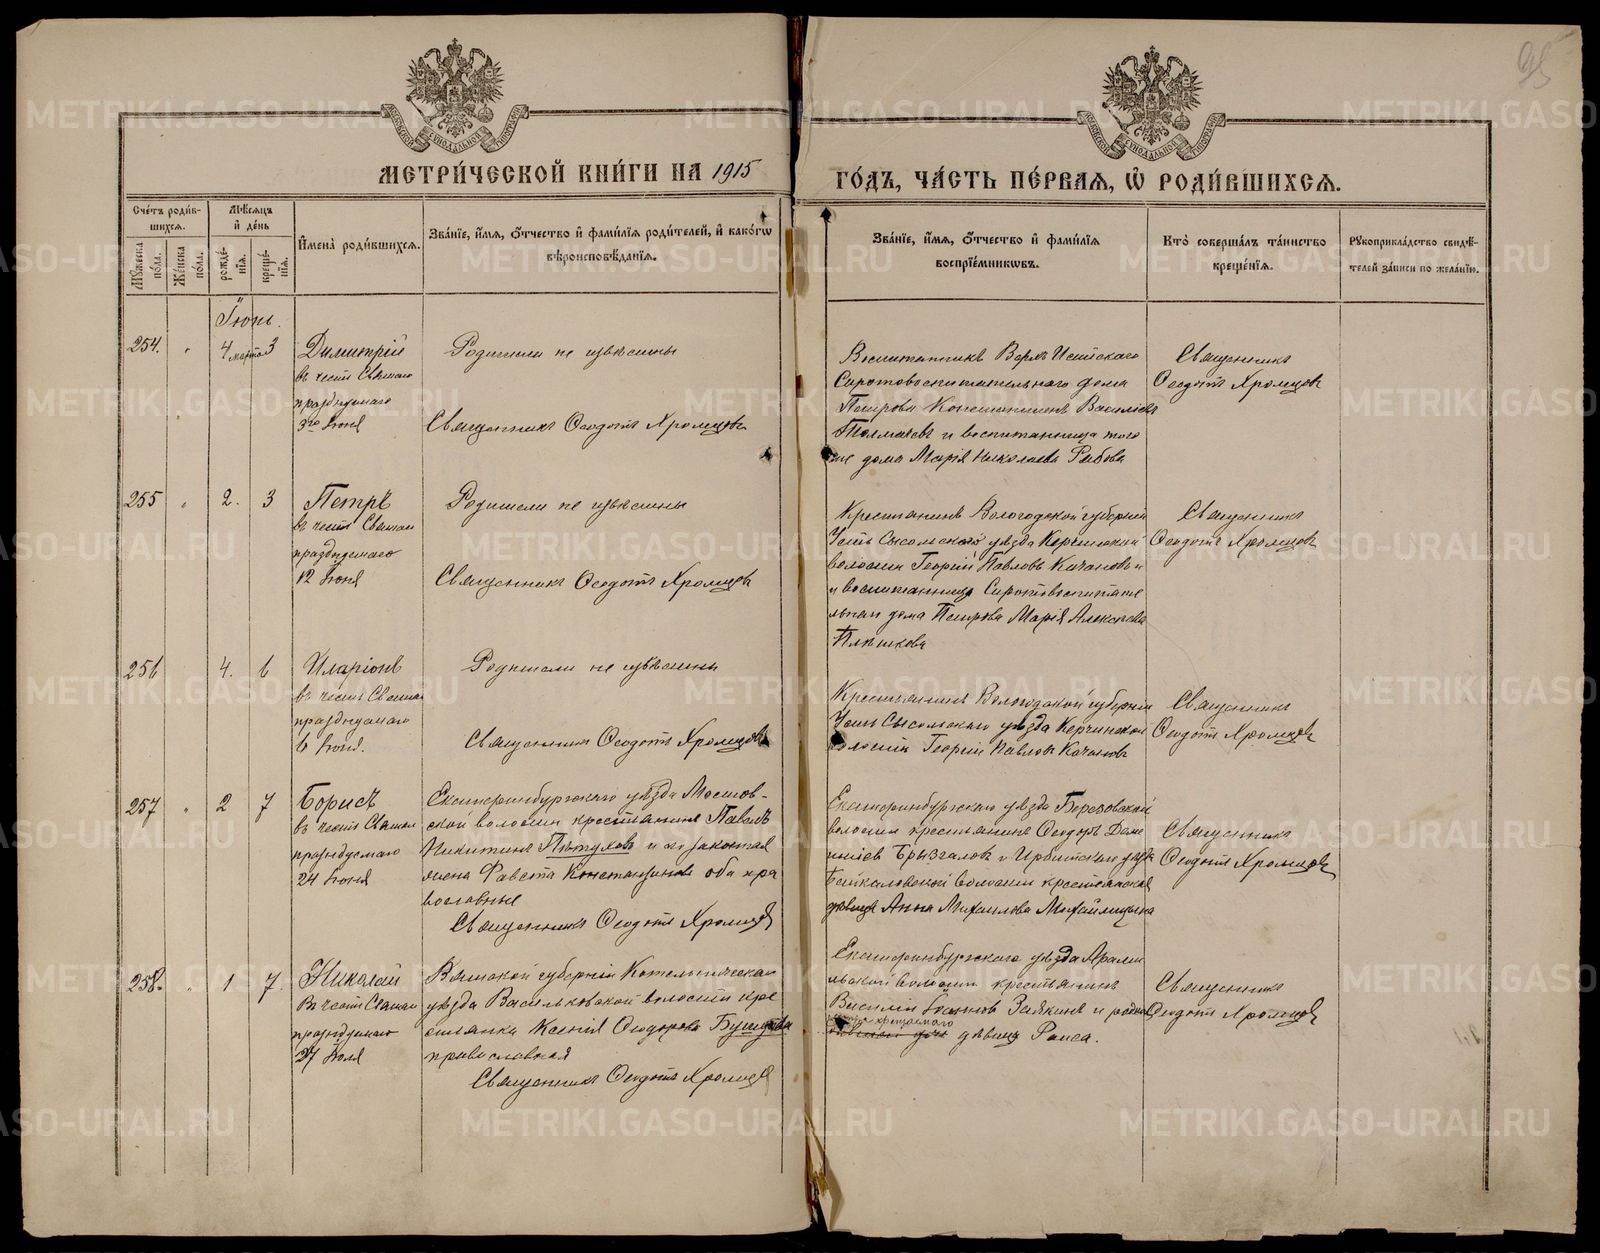 95
МЕТРИ́ЧЕСКОЙ КНИ́ГИ НА 1915
ГО́ДЪ, ЧА́СТЬ ПЕ́РВАЯ, Ѡ РОДИ́ВШИХСЯ.
Сче́тъ роди́в-
шихся.
Му́жеска
по́ла.
Же́нска
по́ла.
Мѣ́сяцъ
и҆ де́нь
рожде́-
нїя.
креще́-
нїя.
И҆мена̀ роди́вшихся.
Зва́нїе, и҆́мя, ѻ҆́тчество и҆ фами́лїя роди́телей, и҆ како́гѡ
вѣроисповѣ́данїя.
Зва́нїе, и҆́мя, ѻ҆́тчество и҆ фами́лїя
воспрїе́мникѡвъ.
Кто̀ соверша́лъ та́инство
креще́нїя.
Рꙋкоприкла́дство свидѣ́-
телей за́писи по жела́нїю.
Іюнь.
254. 4 марта 3 Димитрій
въ честь Святаго
празднуемаго
3го Іюня
Родители не извѣстны
Священникъ Ѳеодотъ Хромцовъ
Воспитанникъ
Сиротовоспитательнаго дома
Петрова Константинъ Васильевъ
Толмачевъ и воспитанница того
же дома Марія Николаева Рябова
Священникъ
Ѳеодотъ Хромцовъ
255 2. 3 Петръ
въ честь Святаго
празднуемаго
12 Іюня
Родители не извѣстны
Священникъ Ѳеодотъ Хромцовъ
Крестьянинъ Вологодской губерніи
Усть Сысольскаго уѣзда Керчемской
волости Георгій Павловъ Качановъ и
и воспитанница Сиротовоспитате
льнаго дома Петрова Марія Алексѣева
Плѣшкова
Священникъ
Ѳеодотъ Хромцовъ
256 4. 6 Иларіонъ
въ честь Святаго
празднуемаго
6 Іюня.
Родители не извѣстны
Священникъ Ѳеодотъ Хромцовъ
Крестьянинъ Вологодской губерніи
Усть Сысольскаго уѣзда Керчинской
волости Георгій Павловъ Качановъ
Священникъ
Ѳеодотъ Хромцовъ
257 2 7 Борисъ
въ честь Святаго
празднуемаго
24 Іюля
Екатеринбургскаго уѣзда Мостов-
ской волости крестьянинъ Павелъ
Никитинъ Пѣтуховъ и его законная
жена Фавста Константинова оба пра
вославные
Священникъ Ѳеодотъ Хромцовъ
Екатеринбургскаго уѣзда Березовской
волости крестьянинъ Ѳеодоръ Доме
нтіевъ Брызгаловъ и Ирбитскаго уѣзда
Байкаловской волости крестьянская
дѣвица Анна Михаилова Михайлицына
Священникъ
Ѳеодотъ Хромцовъ
258. 1 7. Николай
Въ честь Святаго
празднуемаго
27 Іюля
Вятской губерніи Котельническаго
уѣзда Васильковской волости кре
стьянка Ксенія Ѳеодорова Бушуева
православная
Священникъ Ѳеодотъ Хромцовъ
Екатеринбургскаго уѣзда Арамил
ьской волости крестьянинъ
Василій Іоанновъ Заякинъ и
крещаемаго
дѣвица Раиса.
Священникъ
Ѳеодотъ Хромцовъ
METRIKI.GASO-URAL.RU